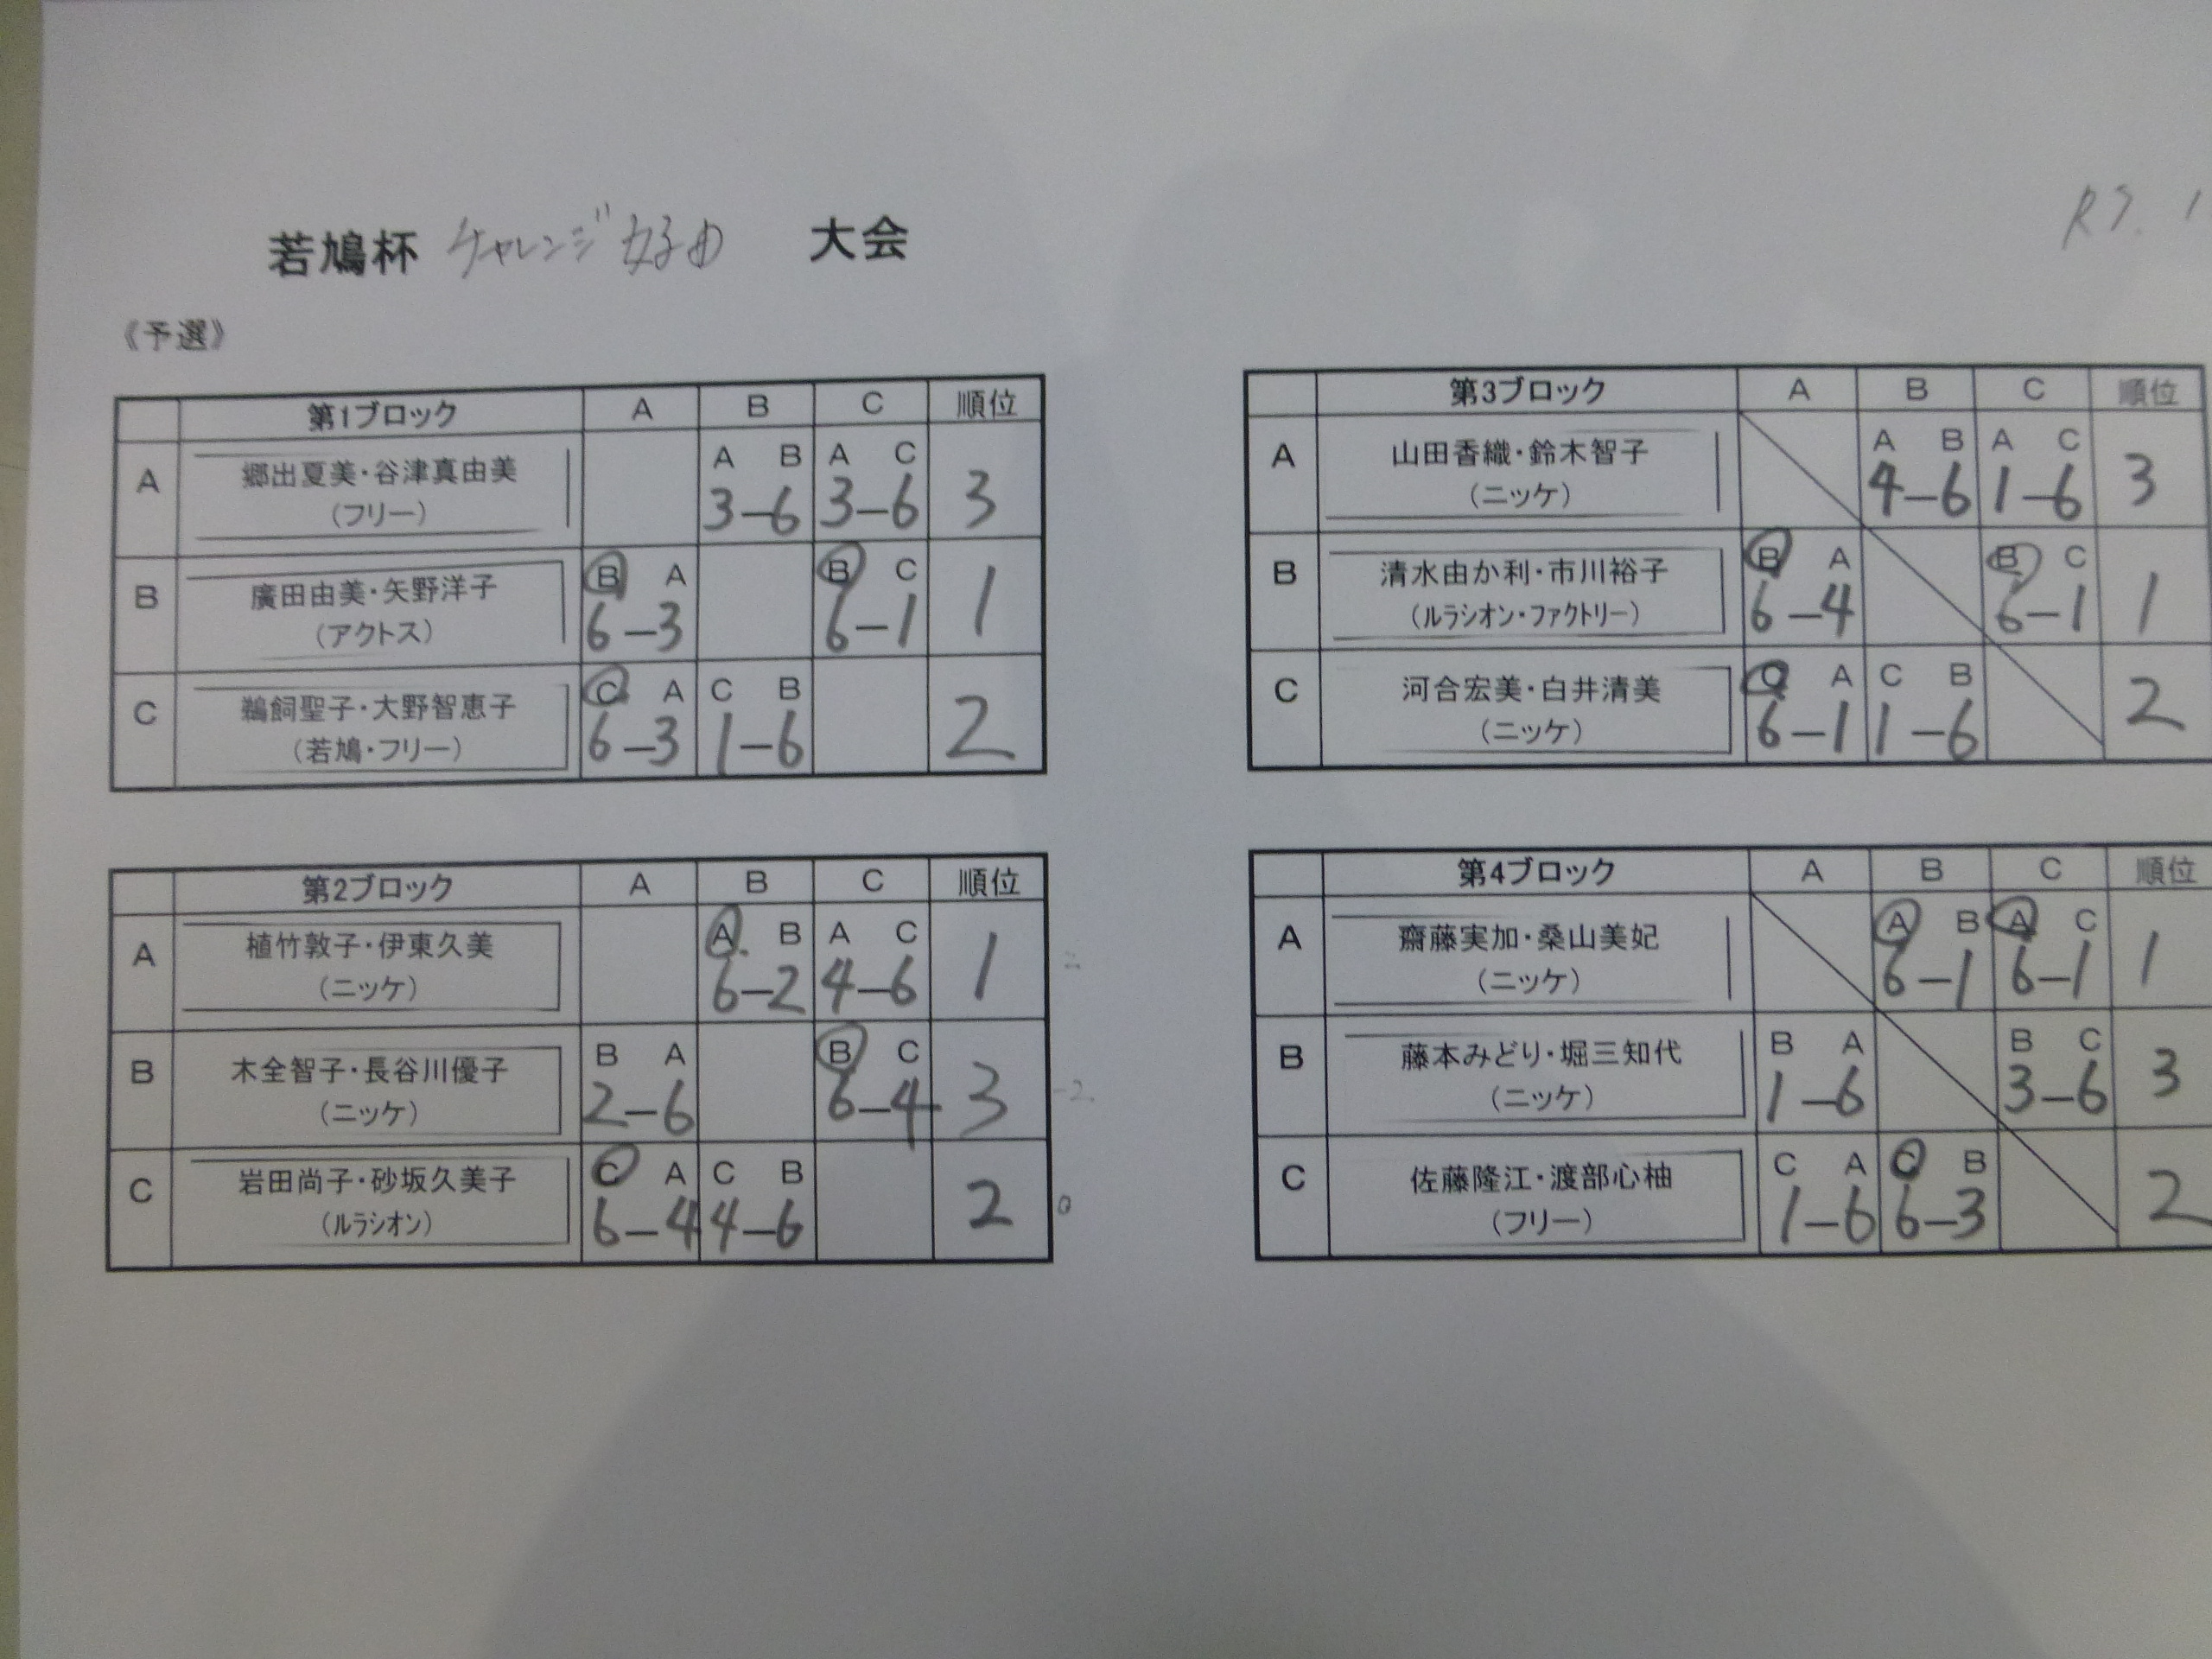 若鳩杯 チャレンジ 女子D 大会
R7. 1
《予選》
第1ブロック A B C 順位
A 郷出夏美・谷津真由美 (フリー) A B 3-6 A C 3-6 3
B 廣田由美・矢野洋子 (アクトス) B A 6-3 B C 6-1 1
C 鵜飼聖子・大野智恵子 (若鳩・フリー) C A 6-3 C B 1-6 2
第2ブロック A B C 順位
A 植竹敦子・伊東久美 (ニッケ) A B 6-2 A C 4-6 1 2
B 木全智子・長谷川優子 (ニッケ) B A 2-6 B C 6-4 3 -2
C 岩田尚子・砂坂久美子 (ルラシオン) C A 6-4 C B 4-6 2 0
第3ブロック A B C 順位
A 山田香織・鈴木智子 (ニッケ) A B 4-6 A C 1-6 3
B 清水由か利・市川裕子 (ルラシオン・ファクトリー) B A 6-4 B C 6-1 1
C 河合宏美・白井清美 (ニッケ) C A 6-1 C B 1-6 2
第4ブロック A B C 順位
A 齋藤実加・桑山美妃 (ニッケ) A B 6-1 A C 6-1 1
B 藤本みどり・堀三知代 (ニッケ) B A 1-6 B C 3-6 3
C 佐藤隆江・渡部心柚 (フリー) C A 1-6 C B 6-3 2